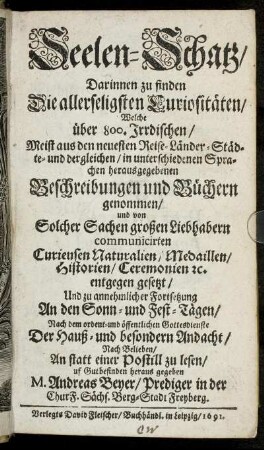 Seelen-Schatz/
Darinnen zu finden
Die allerseligsten Curiositäten/
Welche
über 800. Irrdischen/
Meist aus den neuesten Reise-Länder-Städ-
te-und dergleichen/ in unterschiedenen Spra-
chen herausgegebenen
Beschreibungen und Büchern
genommen/
und von
Solcher Sachen großen Liebhabern
communicirten
Curieusen Naturalien/ Medaillen/
Historien/ Ceremonien ꝛc.
entgegen gesetzt/
Und zu annehmlicher Fortsetzung
An den Sonn- und Fest-Tägen/
Nach dem ordent-und öffentlichen Gottesdienste
Der Hauß- und besondern Andacht/
Nach Belieben/
An statt einer Postill zu lesen/
uf Gutbefinden heraus gegeben
M. Andreas Beyer/ Prediger in der
ChurF. Sächs. Berg-Stadt Freyberg.
Verlegts David Fleischer/ Buchhändl. in Leipzig/ 1691.